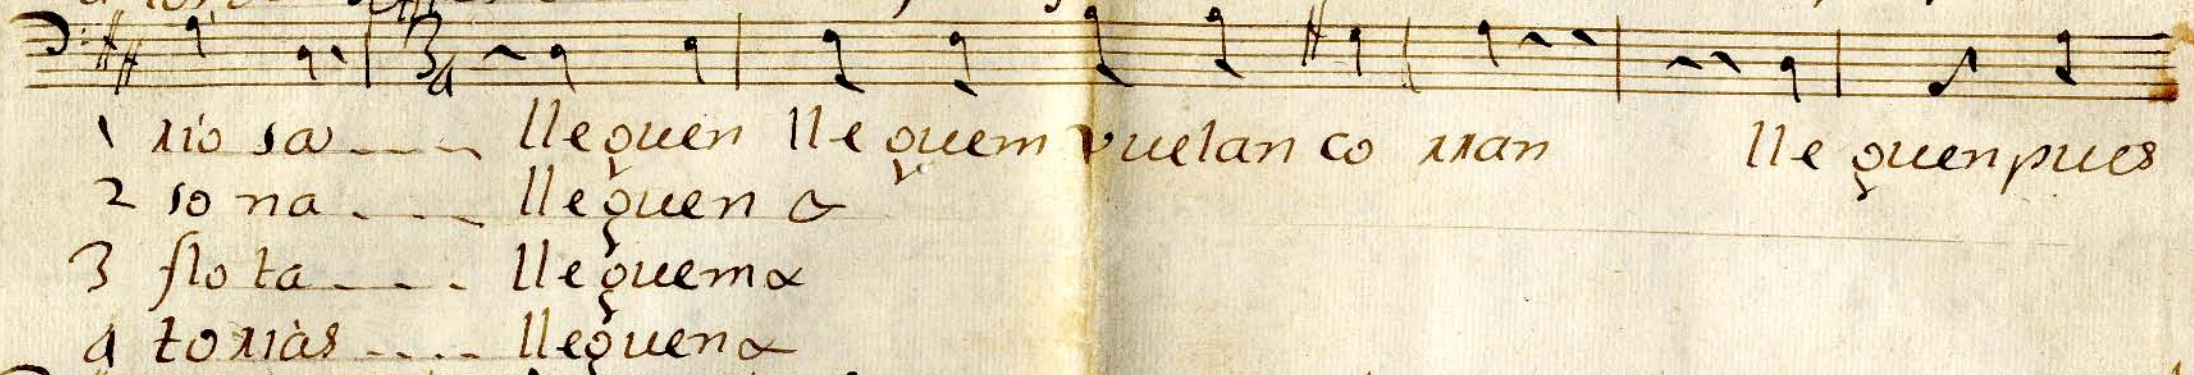 3
4
1 rio sa lleguen lleguem vuelan co rran lleguen pues
2 so na lleguen &
3 flo ta lleguem &
4 torias lleguen &